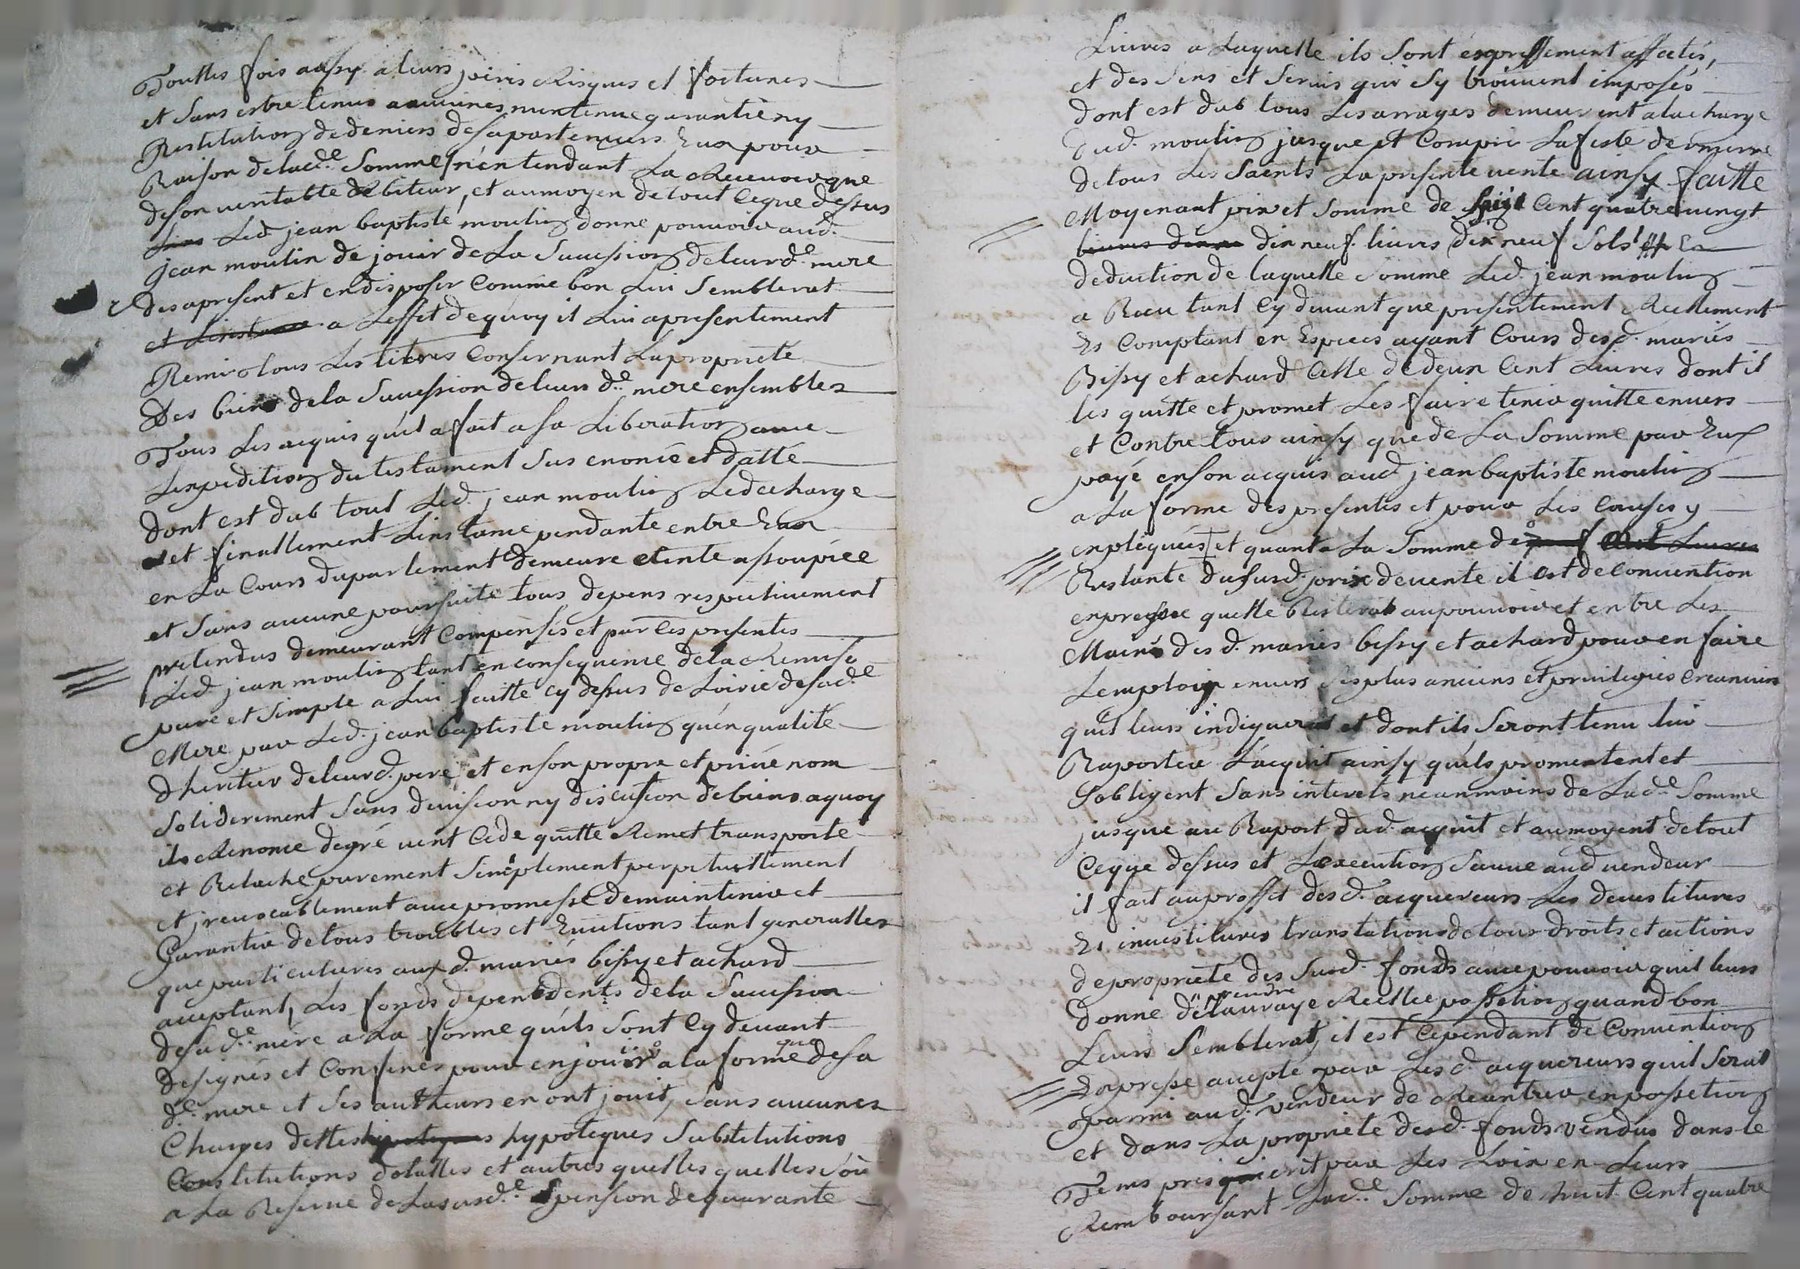 Touttes fois aussy a leurs perils Risques et fortunes
et sans estre tenus a aucunes maintenue garantie ny
Restitution de deniers desapartenuers Eux pour
Raison de lad.e Somme n'entendant La Recevoir que
de son veritable debiteur, et au moyen de tout ce que dessus
Led. jean baptiste moulin donne pouvoir aud.
jean moulin de jouir de La Sucession de leur d.e mere
des apresent et en disposer Comme bon Lui Semblerat
et a Leffet de quoy il Lui a presentement
Remi tous Les titres Consernant La propriété
Des biens de la Sucession de leurs d.e mere ensembles
Tous Les acquis qu'il a fait a sa Liberation avec
Lexpedition du testament Sus enoncé et datté
dont est dub tout Led. jean moulin Led echarge
et finallement Linstance pendante entre Eux
en La Cours du parlement demeure eteinte assoupiee
et Sans aucune poursuite tous depens respectivement
pretendus demeurant Compensés et par Ces presentes
Led. jean moulin tant en consequence de la Remise
pure et Simple a Lui faitte cy dessus de Loirie de sad.e
Mere par Led. jean baptiste moulin qu'en qualité
D heritier de leur d. pere et en son propre et privé nom
Soliderement Sans division ny discusion de biens a quoy
il Renonce de gré vent Cede quitte Remet transporte
et Relache purement Simplement perpetuellement
et jrevocablement avec promesse de maintenir et
Garantir de tous troubles et Evictions tant generalles
que particulieres aux d. mariés bissy et achard
acceptant, Les fonds dependents de la Sucession
de sa d.e mere a La forme qu'ils Sont Cy devant
designés et Confines pour en jouir a la forme que de sa
d.e mere et Ses autheurs en ont jouit, sans aucunes
Charges dettes hypoteques Substitutions
Constitutions dotalles et autres quelles quelles Soit
a La Reserve de La susd.e pension de quarante
Livres a Laquelle ils Sont expressement affectés,
et des Sens et Servis qui Sy trouvent imposés
dont est dub tous Les arrages demeurent a la charge
dud. moulin jusque et Compri La feste de
de tous Les Saints La presente vente ainsy faitte
Moyenant prix et Somme de Cent quatre vingt
dix neuf livres dix neuf Sols En
deduction de laquelle Somme Led. jean moulin
a Recu tant Cy devant que presentement Reellement
Et Comptant en Especes ayant Cours desd. mariés
Bissy et achard Celle de deux Cent Livres dont il
les quitte et promet Les faire tenir quitte envers
et Contre tous ainsy que de La Somme par Eux
payé en son acquis aud. jean baptiste moulin
a La forme des presentes et pour Les Causes y
expliquées et quant a La Somme de
Restante du susd. prix de vente il Est de Convention
expresse quelle Resterat au pouvoir et entre Les
Mains des d. mariés bissy et achard pour en faire
Lemploix envers Ses plus anciens et privilegies Creanciers
quil leurs indiquerat et dont ils Seront tenu lui
Raporter Lacquit ainsy quils promentent et
Sobligent Sans interets neanmoins de Lad.e Somme
jusque au Raport dud. acquit et au moyent de tout
Ceque dessus et Lexecution Sauve aud vendeur
il fait au proffit desd. acquereurs Les devestitures
Et investitures translations de tous droits et actions
de propriété des Susd. fonds avec pouvoir quil leurs
donne d'en prendre La vraye Reelle possetion quand bon
Leurs Semblerat, il est Cependant de Convention
Expresse accepté par Lesd. acquereurs quil Serat
parmi aud. vendeur de Reantrer en possetion
et dans La propriété desd. fonds vendus dans le
Tems prescrit par Les Loix en Leurs
Remboursant Lad.e Somme de huit Cent quatre